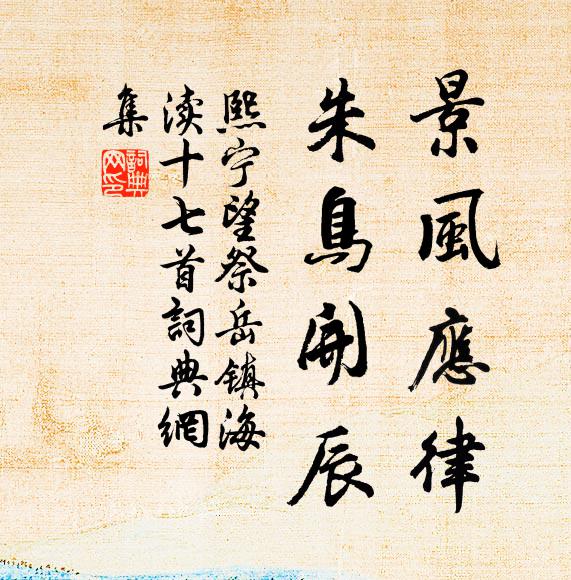 景風應律
朱鳥開辰
熙宁望祭岳镇海
渎十七首詞典網
集
詞典
网印